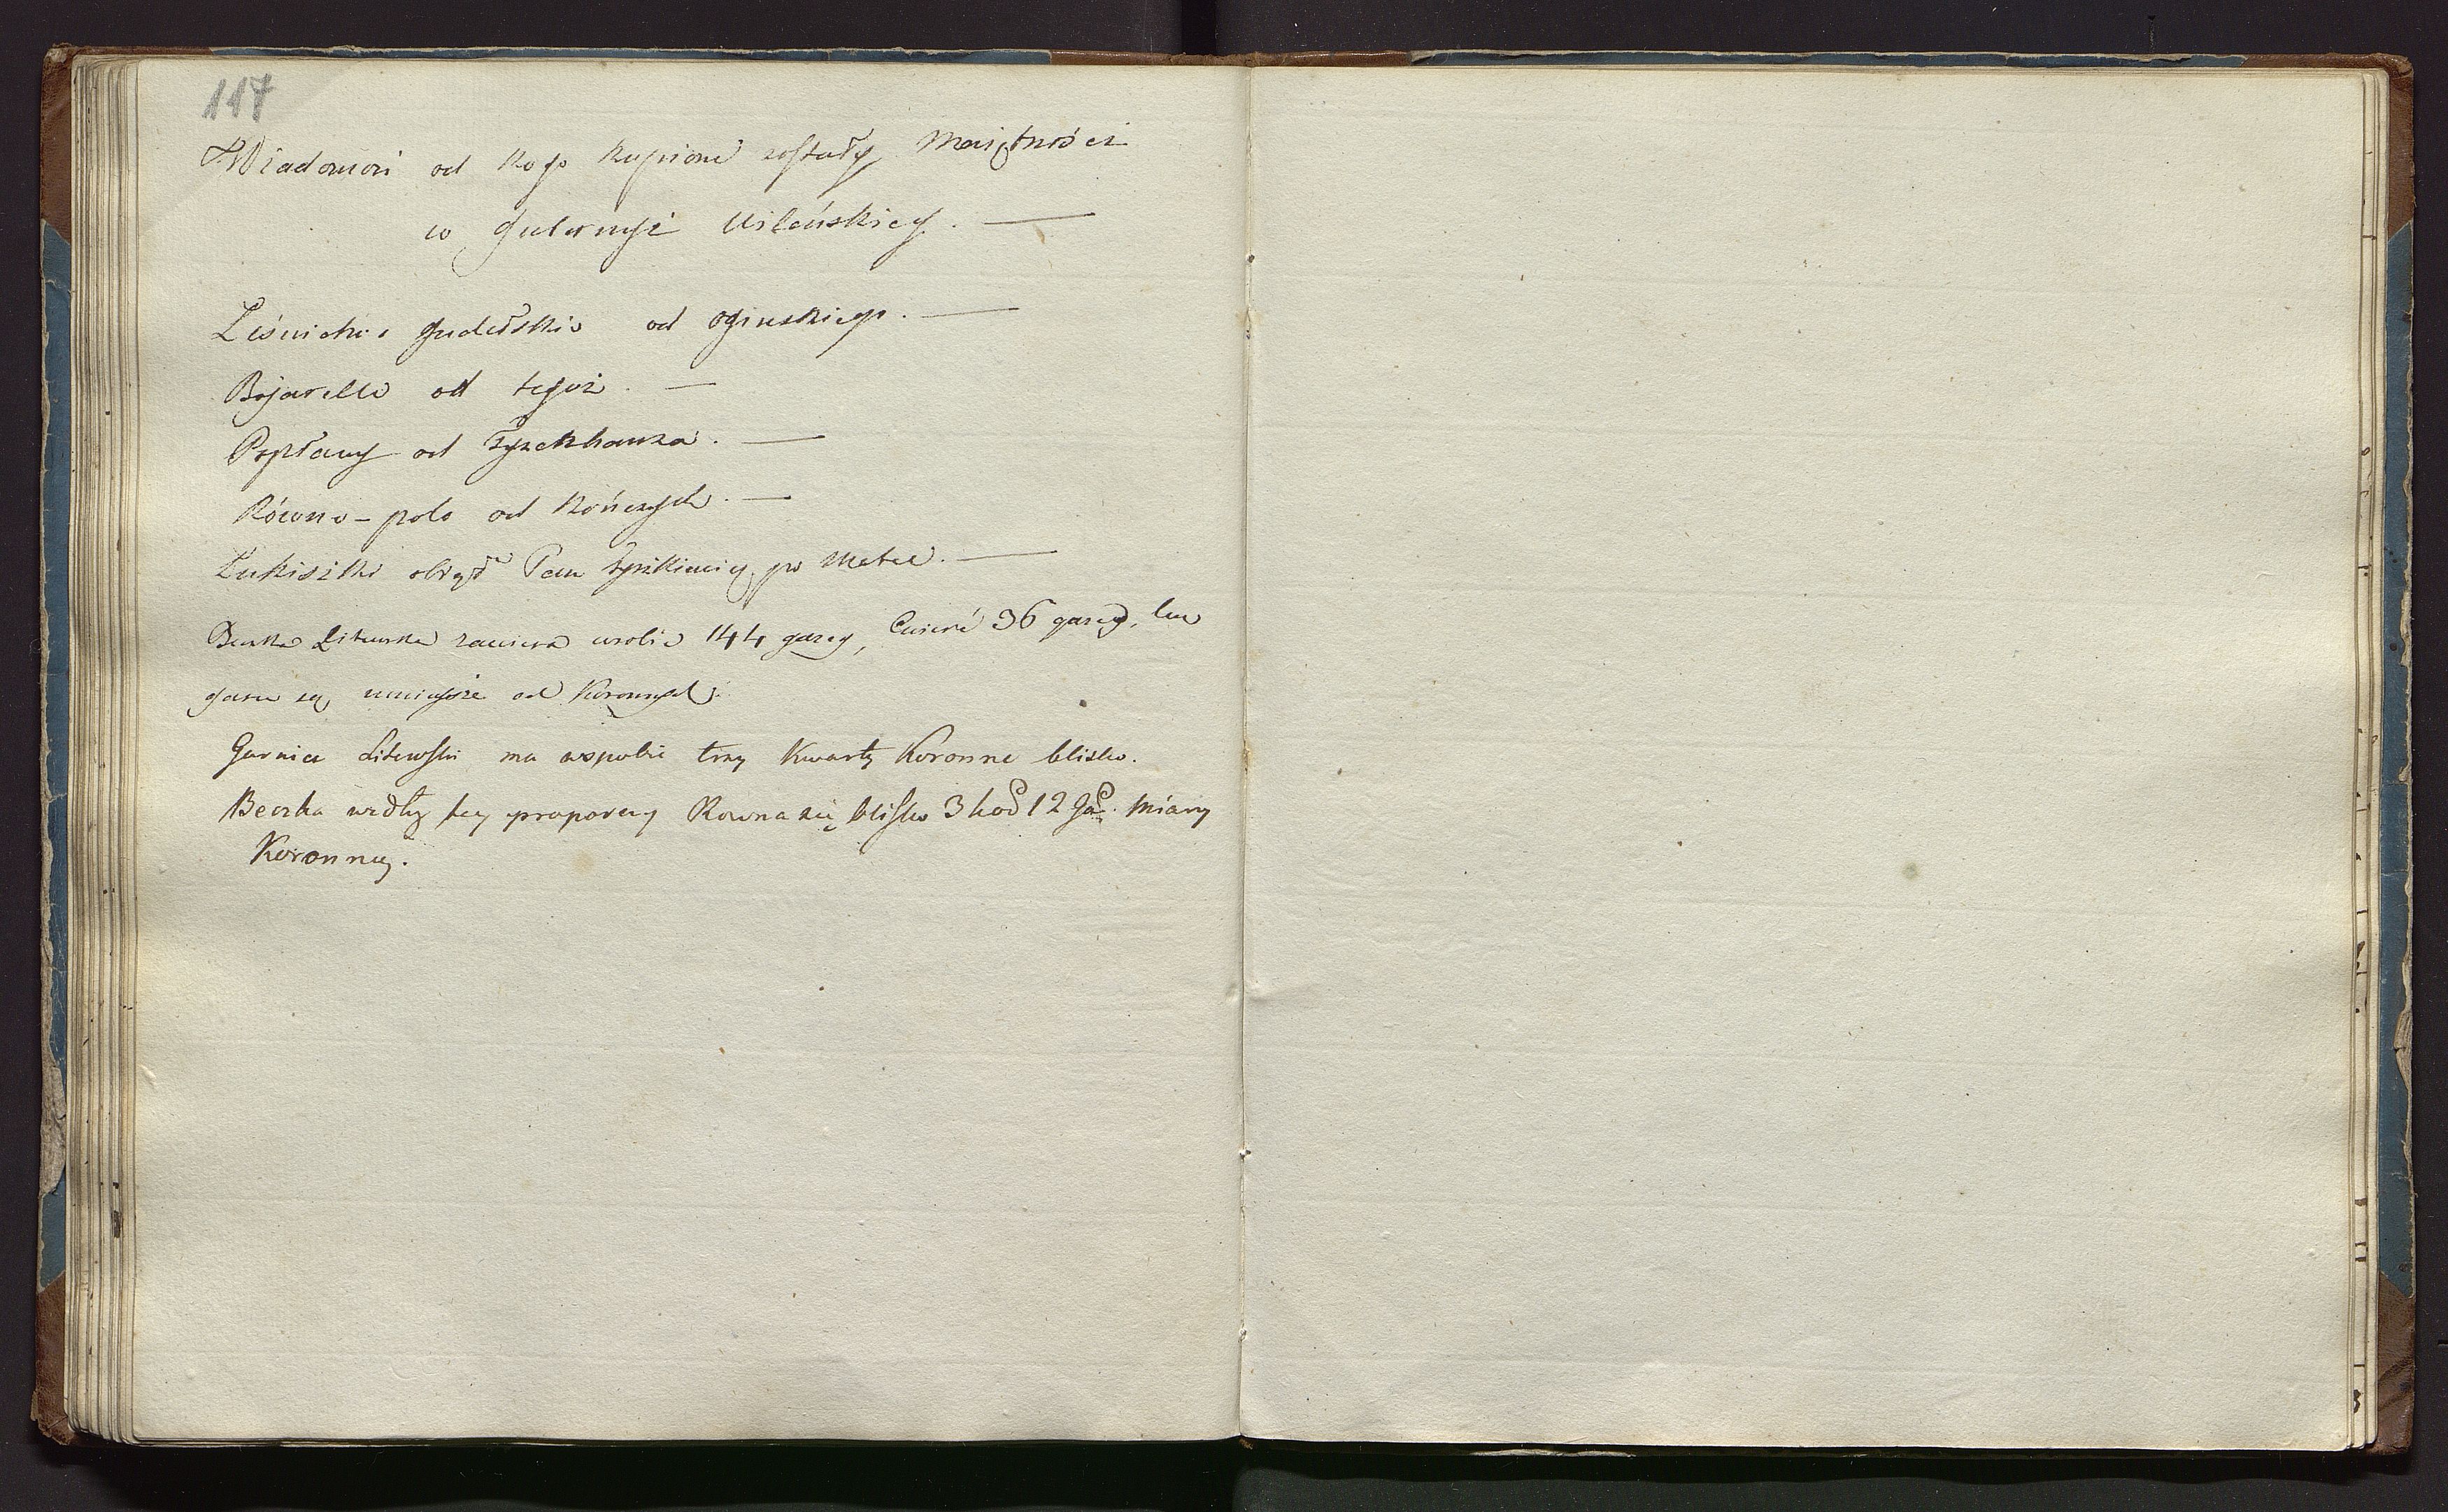 117
Wiadomość od kogo kupione zostały Maiętności
w Gubernyi Wileńskiey. —
Leśnictwo Gudelskie od Oginskiego. —
Bojarelle od tegoż. —
Popławy od Tyzekhauza. —
Równo-pole od Kończych. —
Łukiszki objął Pan po Matce. —
Beczka Litewska zawiera w sobie 144 garcy, Cwierć 36 garcy,
garce są mnieysze od Koronnych.
Garniec Litewski ma w sobie trzy kwarty Koronne blisko.
Beczka wedłg tey proporcyi Rowna się blisko 3 kor 12 Gar. Miary
Koronney.